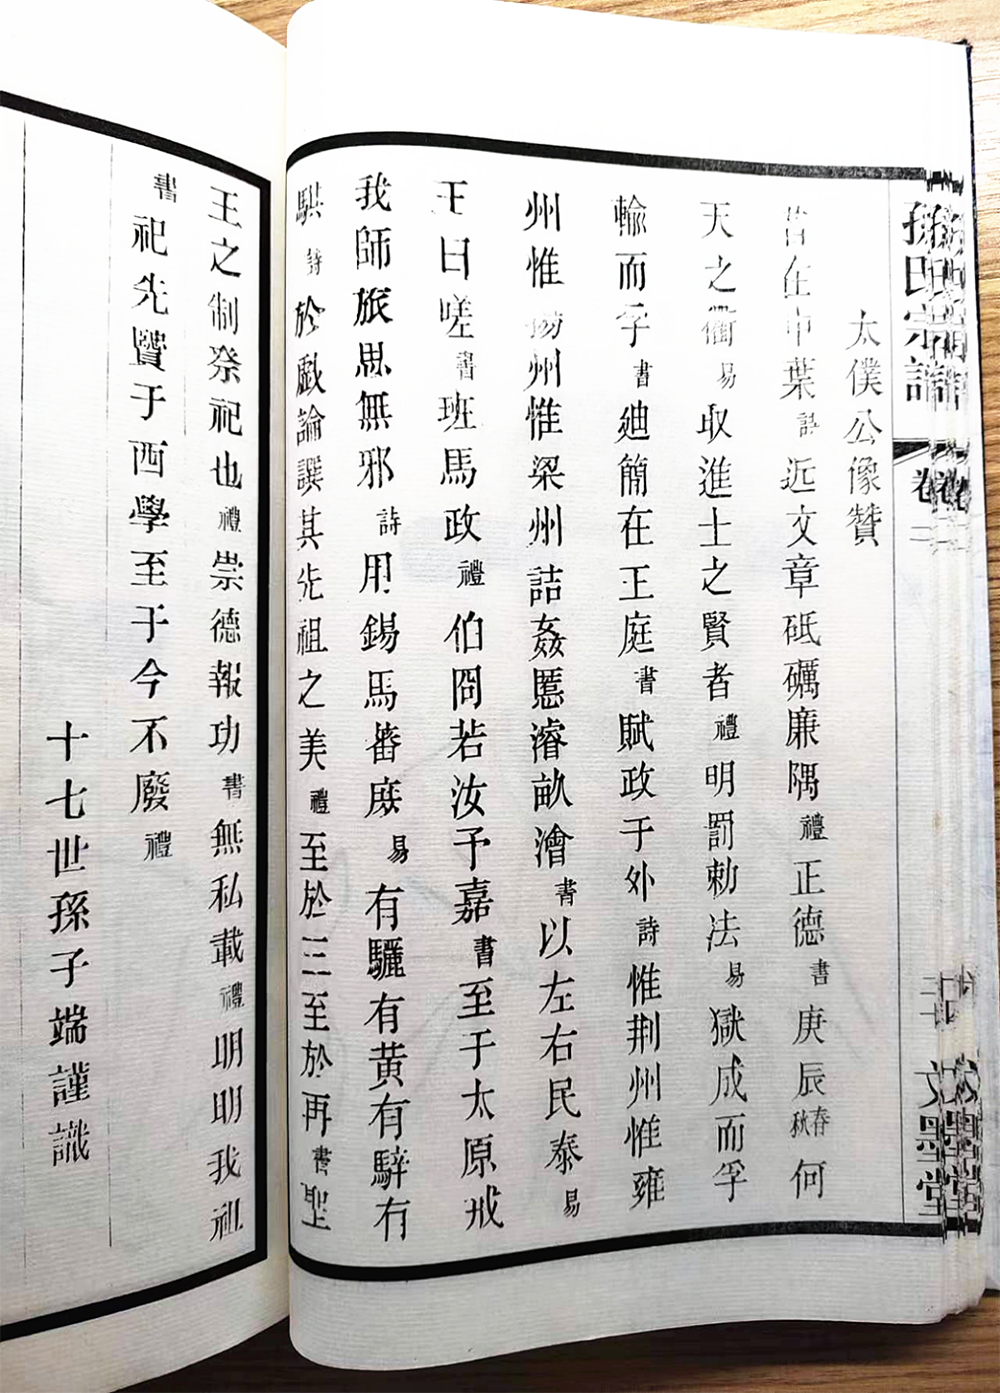 孫氏宗譜
卷二
文墨堂
太僕公像贊
昔在中葉詩近文章砥礪廉隅禮正德書庚辰春秋何
天之衢易取進士之賢者禮明罰勅法易獄成而孚
輸而孚書迪簡在王庭書賦政于外詩惟荆州惟雍
州惟揚州惟梁州詰姦慝濬畎澮書以左右民泰易
王曰嗟書班馬政禮伯冏若汝予嘉書至于太原戒
我師旅思無邪詩用錫馬蕃庶易有驪有黄有騂有
騏詩於戲論譔其先祖之美禮至於三至於再書聖
王之制祭祀也禮崇德報功書無私載禮明明我祖
書祀先贒于西學至于今不廢禮
十七世孫子端謹識